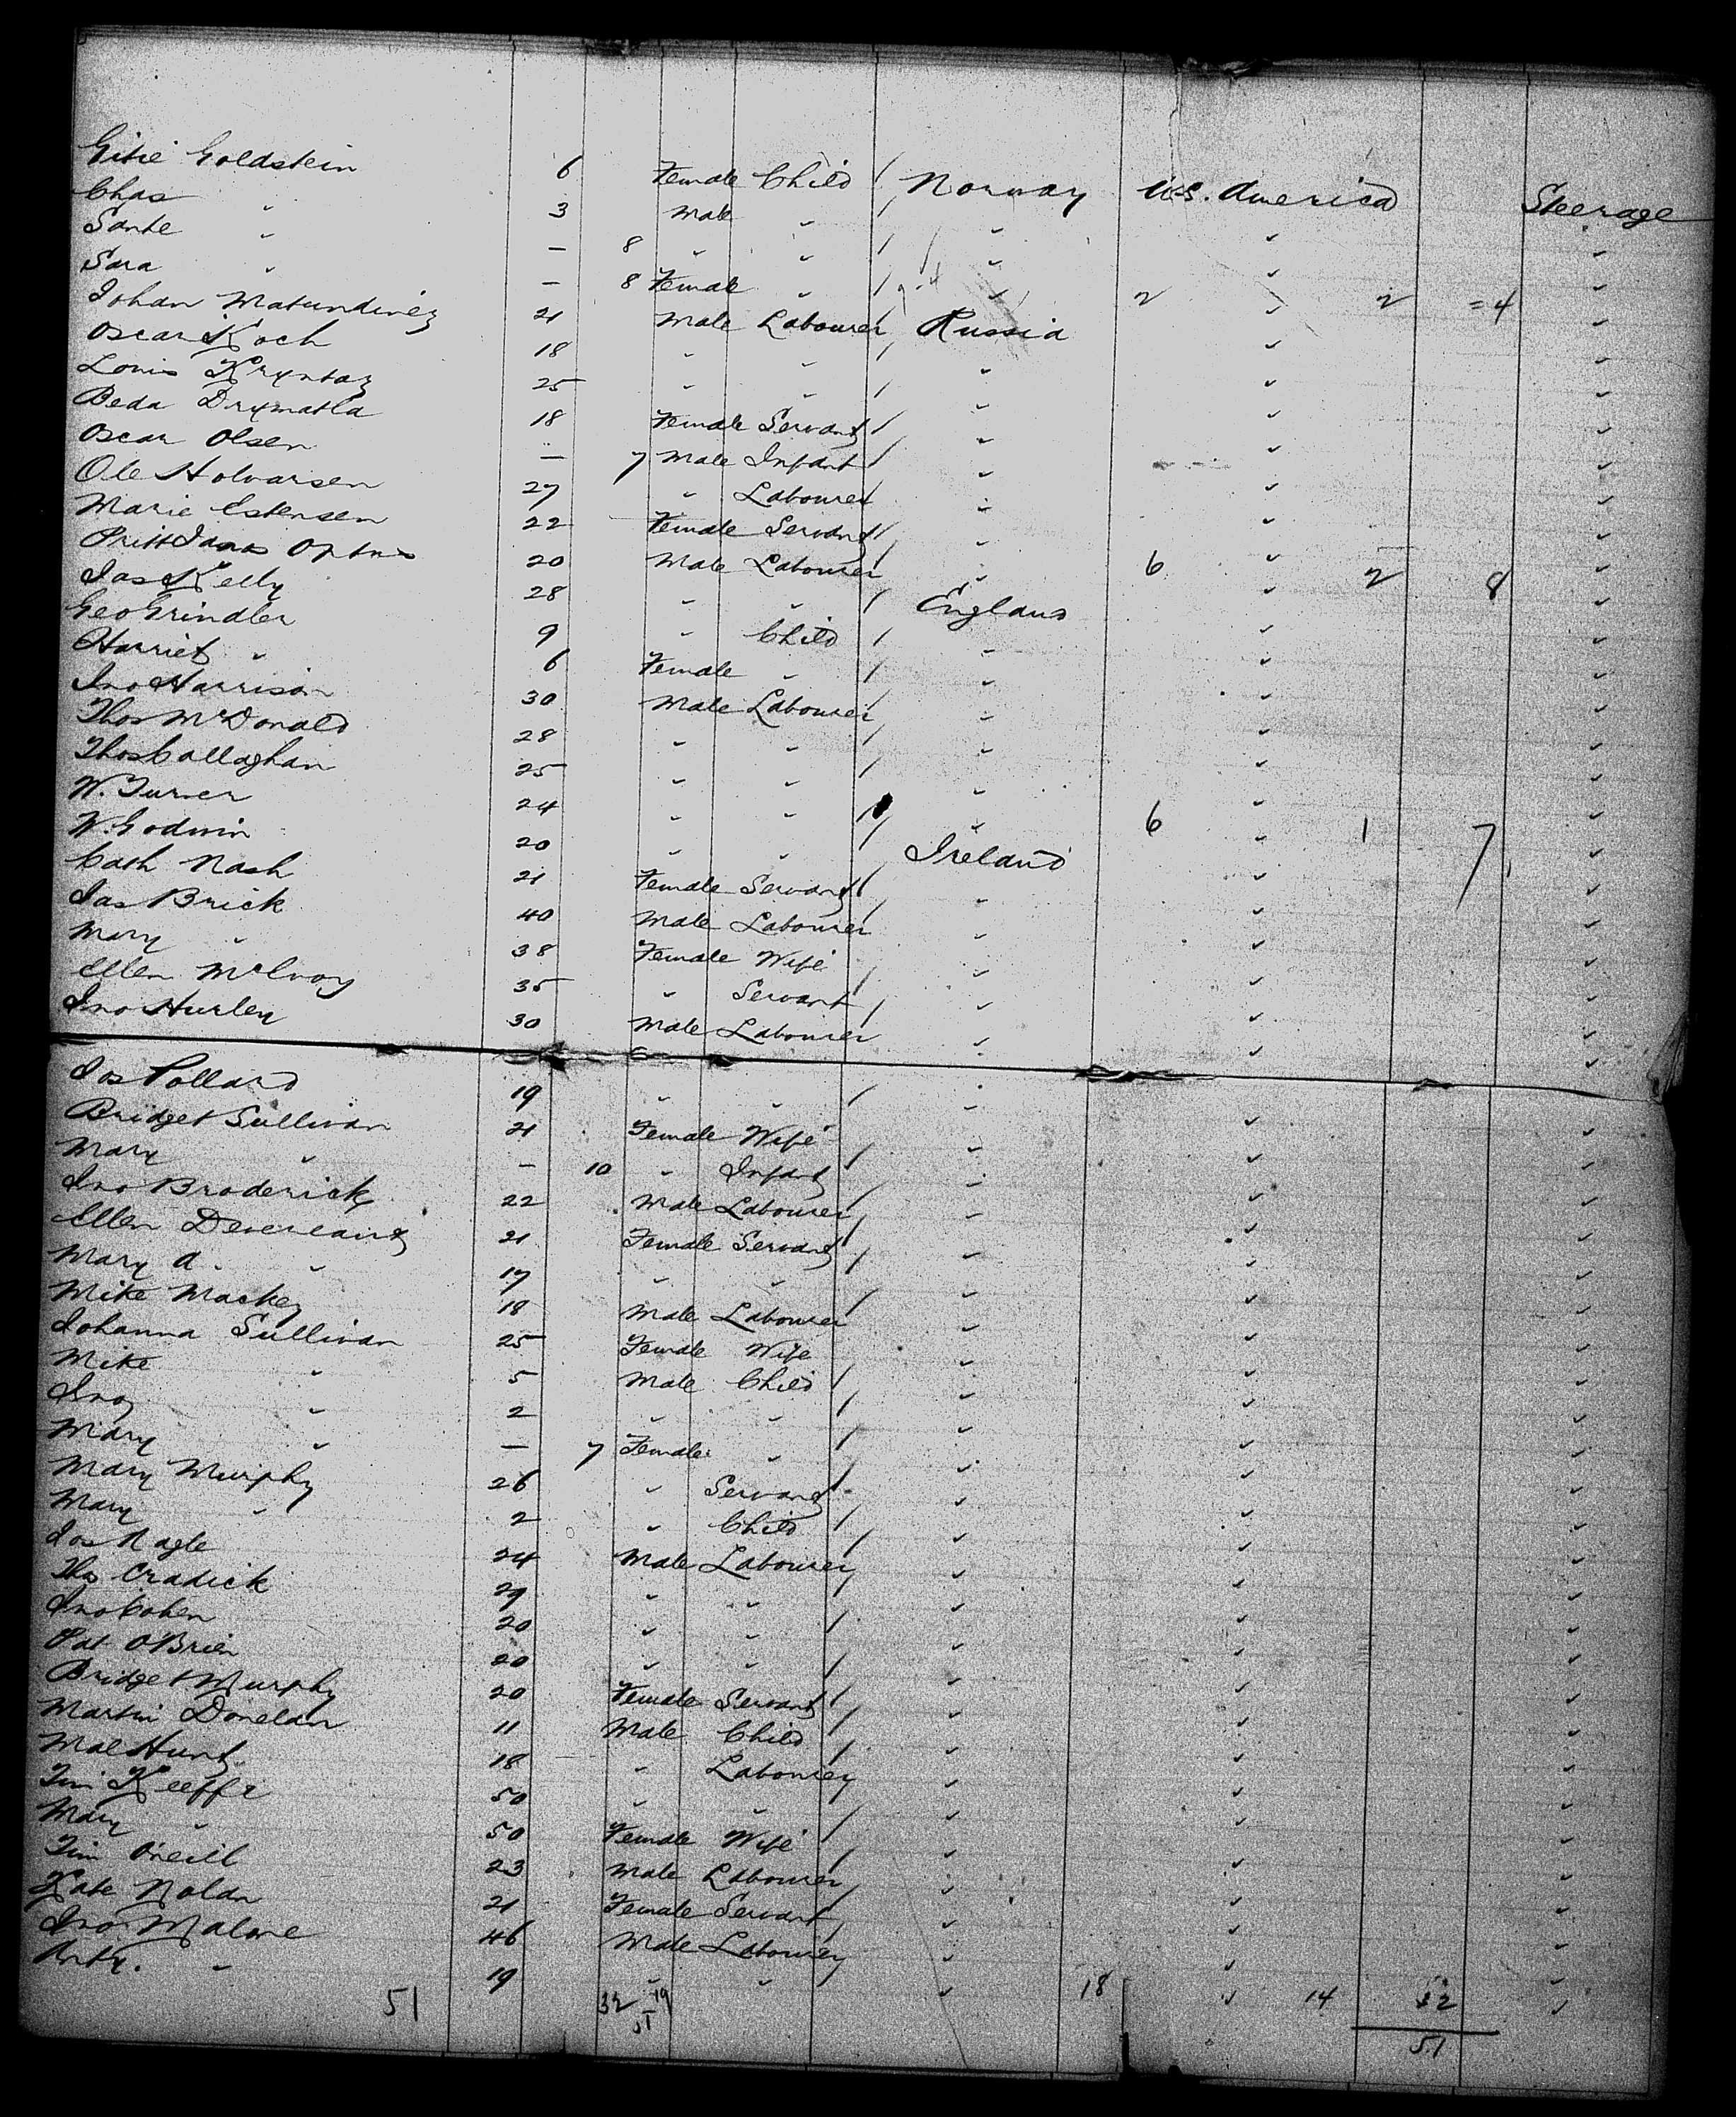 Gitie Goldstein 6 Female Child / Norway U.S. America Steerage
Chas " 3 Male " / " " "
Sante " — 8 " " / " " "
Sara " — 8 Female " / " 2 " 2 = 4 "
Johan 21 Male Labourer Russia " "
Oscar Koch 18 " " / " " "
Louis 25 " " / " " "
Beda Drymatla 18 Female Servant / " " "
Oscar Olsen — 7 Male Infant / " " "
Ole Holvarsen 27 " Labourer " " "
Marie Estensen 22 Female Servant / " " "
20 Male Labourer " 6 " 2 8 "
Jas Kelly 28 " " / England " "
Geo Grindler 9 " Child / " " "
Harriet " 6 Female " / " " "
Jno Harrison 30 Male Labourer " " "
Thos McDonald 28 " " / " " "
Thos Callaghan 25 " " / " " "
W. Turner 24 " " / " 6 " 1 7 "
W. Godwin 20 " " / Ireland " "
Cath Nash 21 Female Servant / " " "
Jas Brick 40 Male Labourer " " "
Mary " 38 Female Wife / " " "
Ellen McEvoy 35 " Servant / " " "
Jno Hurley 30 Male Labourer " " "
Jos Pollard 19 " " / " " "
Bridget Sullivan 21 Female Wife / " " "
Mary " — 10 " Infant / " " "
Jno Broderick 22 Male Labourer / " " "
Ellen Devereaux 21 Female Servant / " " "
Mary A. " 17 " " / " " "
Mike Mackey 18 Male Labourer " " "
Johanna Sullivan 25 Female Wife " " "
Mike " 5 Male Child / " " "
Jno " 2 " " / " " "
Mary " — 7 Female " / " " "
Mary Murphy 26 " Servant " " "
Mary " 2 " Child / " " "
Jos Nagle 24 Male Labourer " " "
Thos Cradick 29 " " / " " "
Jno Cohen 20 " " / " " "
Pat O'Brien 20 " " / " " "
Bridget Murphy 20 Female Servant / " " "
Martin Donelan 11 Male Child / " " "
Hunt 18 " Labourer " " "
Tim Keeffe 50 " " / " " "
Mary " 50 Female Wife / " " "
Tim O'neill 23 Male Labourer / " " "
Kate Nolan 21 Female Servant / " " "
Jno Malone 46 Male Labourer " " "
" 19 " " " 18 " 14 32 "
51 32 19 51 51